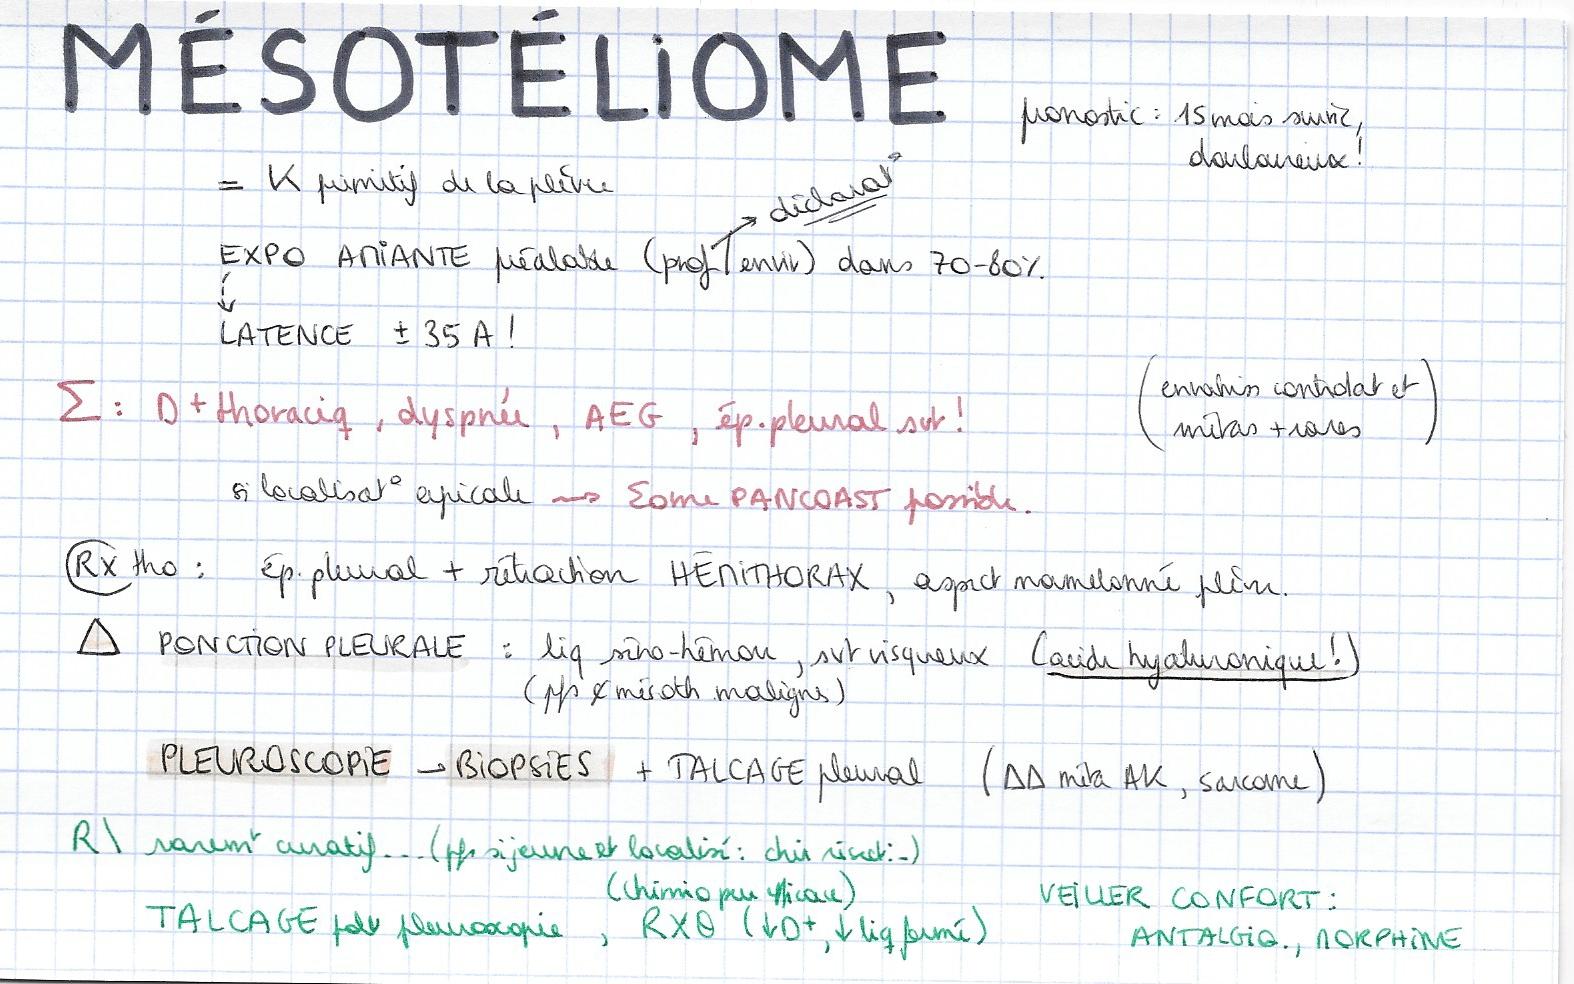 MÉSOTÉLIOME
pronostic : 15 mois survie,
douloureux !
= K primitif de la plèvre
→ déclarat°
EXPO AMIANTE préalable (prof/envir) dans 70-80%.
LATENCE ± 35 A !
Σ : D+ thoraciq, dyspnée, AEG, ép. pleural svt !
(envahis controlat et
métas + rares)
si localisat° apicale → Σome PANCOAST possible.
RX tho : ép. pleural + rétraction HÉMITHORAX, aspect mamelonné plèv.
Δ PONCTION PLEURALE : liq séro-hémou, svt visqueux (acide hyaluronique !)
(pfs ¢ mésoth malignes)
PLEUROSCOPIE → BIOPSIES + TALCAGE pleural (ΔΔ méta AK, sarcome)
R\ rarem^t curatif... (pfs si jeune et localisé : chir résect° -)
(chimio peu efficace)
VEILLER CONFORT :
TALCAGE pdt pleuroscopie, RXθ (↓D+, ↓liq formé)
ANTALGIQ., MORPHINE